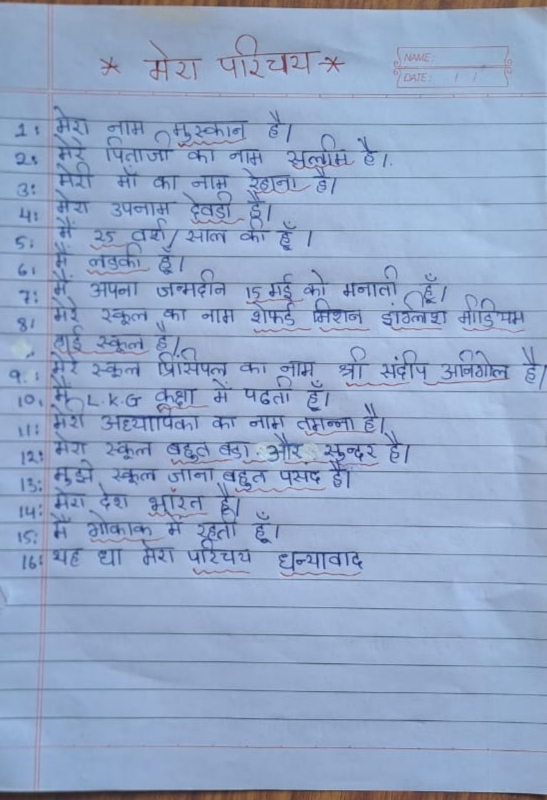 * मेरा परिचय *
NAME:
DATE: / /
1: मेरा नाम मुस्कान है।
2: मेरे पिताजी का नाम सलीम है।.
3: मेरी माँ का नाम रेहाना है।
4: मेरा उपनाम देवडी है।
5: मैं 25 वर्श/साल की हूँ।
6: मैं लडकी हूँ।
7: मैं अपना जन्मदीन 15 मई को मनाती हूँ।
8: मेरे स्कूल का नाम शेफर्ड मिशन इंग्लिश मीडियम
हाई स्कूल है।
9: मेरे स्कूल प्रिंसिपल का नाम श्री संदीप अनिगोल है।
10. मैं L.K.G कक्षा में पढती हूँ।
11: मेरी अध्यापिका का नाम तमन्ना है।
12: मेरा स्कूल बहुत बडा और सुन्दर है।
13: मुझे स्कूल जाना बहुत पसंद है।
14: मेरा देश भारत है।
15: मैं गोकाक में रहती हूँ।
16: यह था मेरा परिचय धन्यावाद